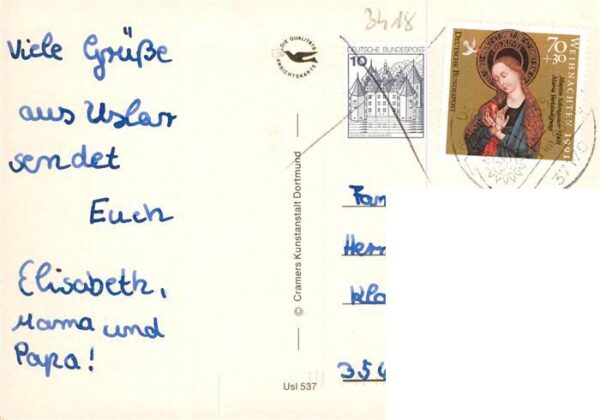 Viele Grüße
aus Uslar
sendet
Euch
Elisabeth,
Mama und
Papa!
DIE QUALITÄTS
ANSICHTSKARTE
© Cramers Kunstanstalt Dortmund
Usl 537
3418
DEUTSCHE BUNDESPOST
10
70
+30
WEIHNACHTEN 1991
DEUTSCHE BUNDESPOST
3717
Fam
Herr
Klo
354